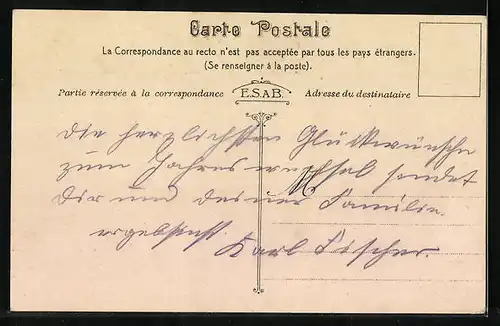 Carte Postale
La Correspondance au recto n'est pas acceptée par tous les pays étrangers.
(Se renseigner à la poste).
Partie réservée à la correspondance
E.S.A.B.
Adresse du destinataire
die herzlichsten Glückwünsche
zum Jahreswechsel sendet
Dir und deiner Familie.
ergebenst
Karl Fischer.